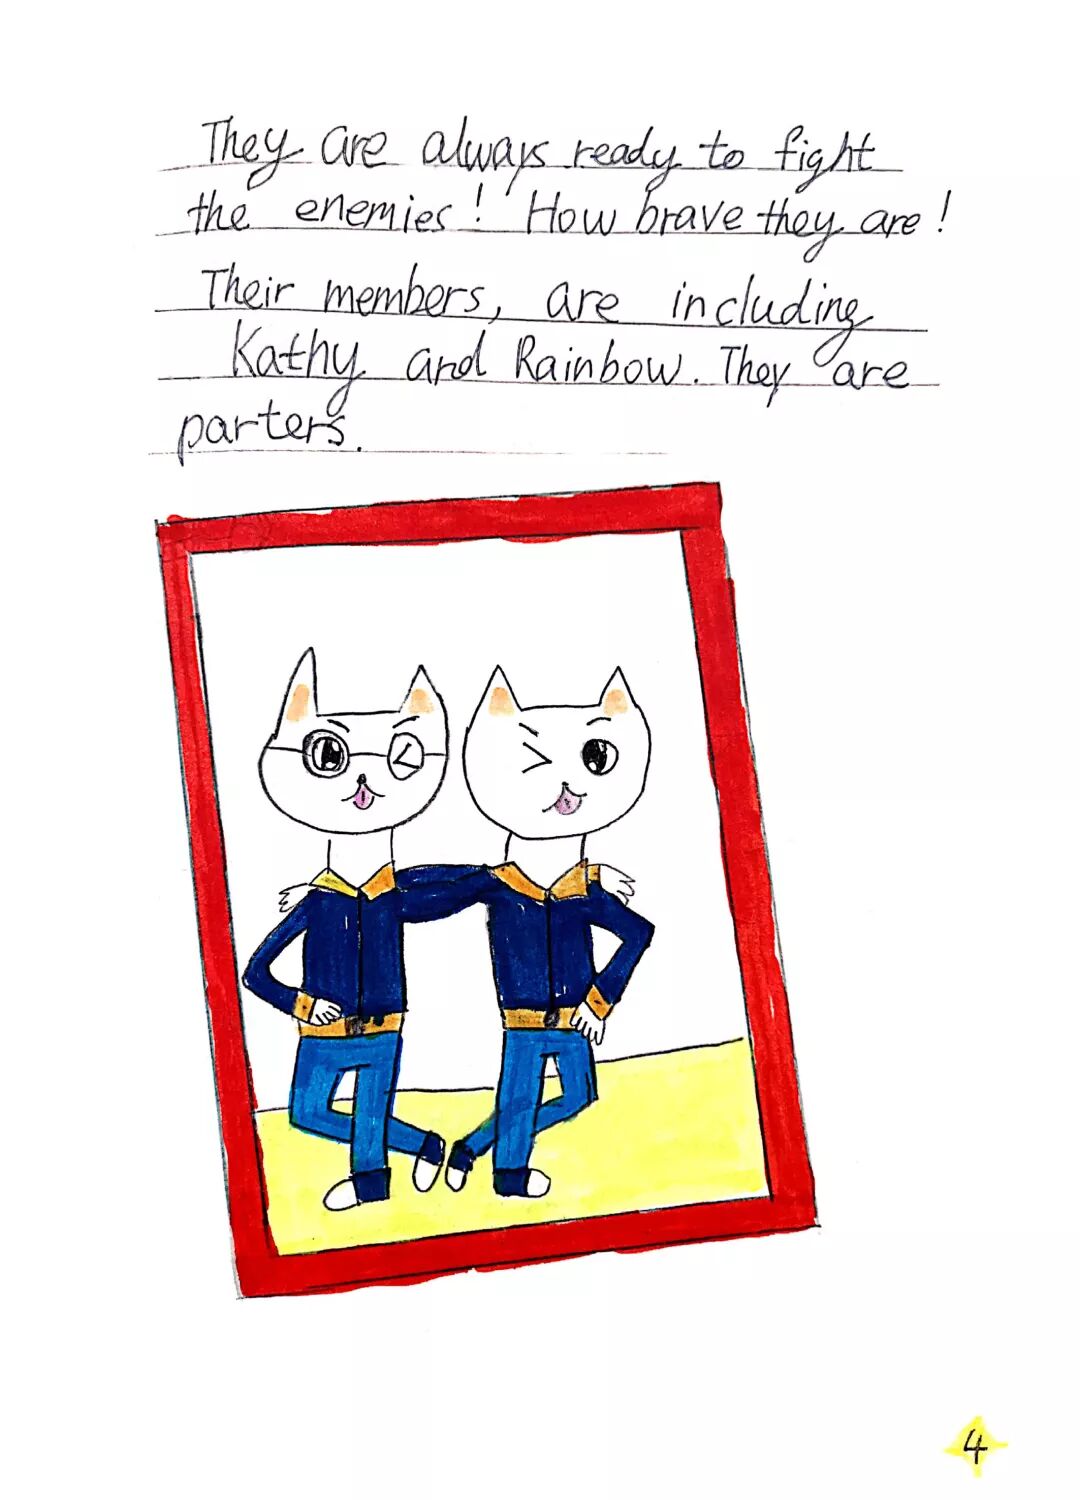 They are always ready to fight
the enemies! How brave they are!
Their members, are including
Kathy and Rainbow. They are
parters.
4